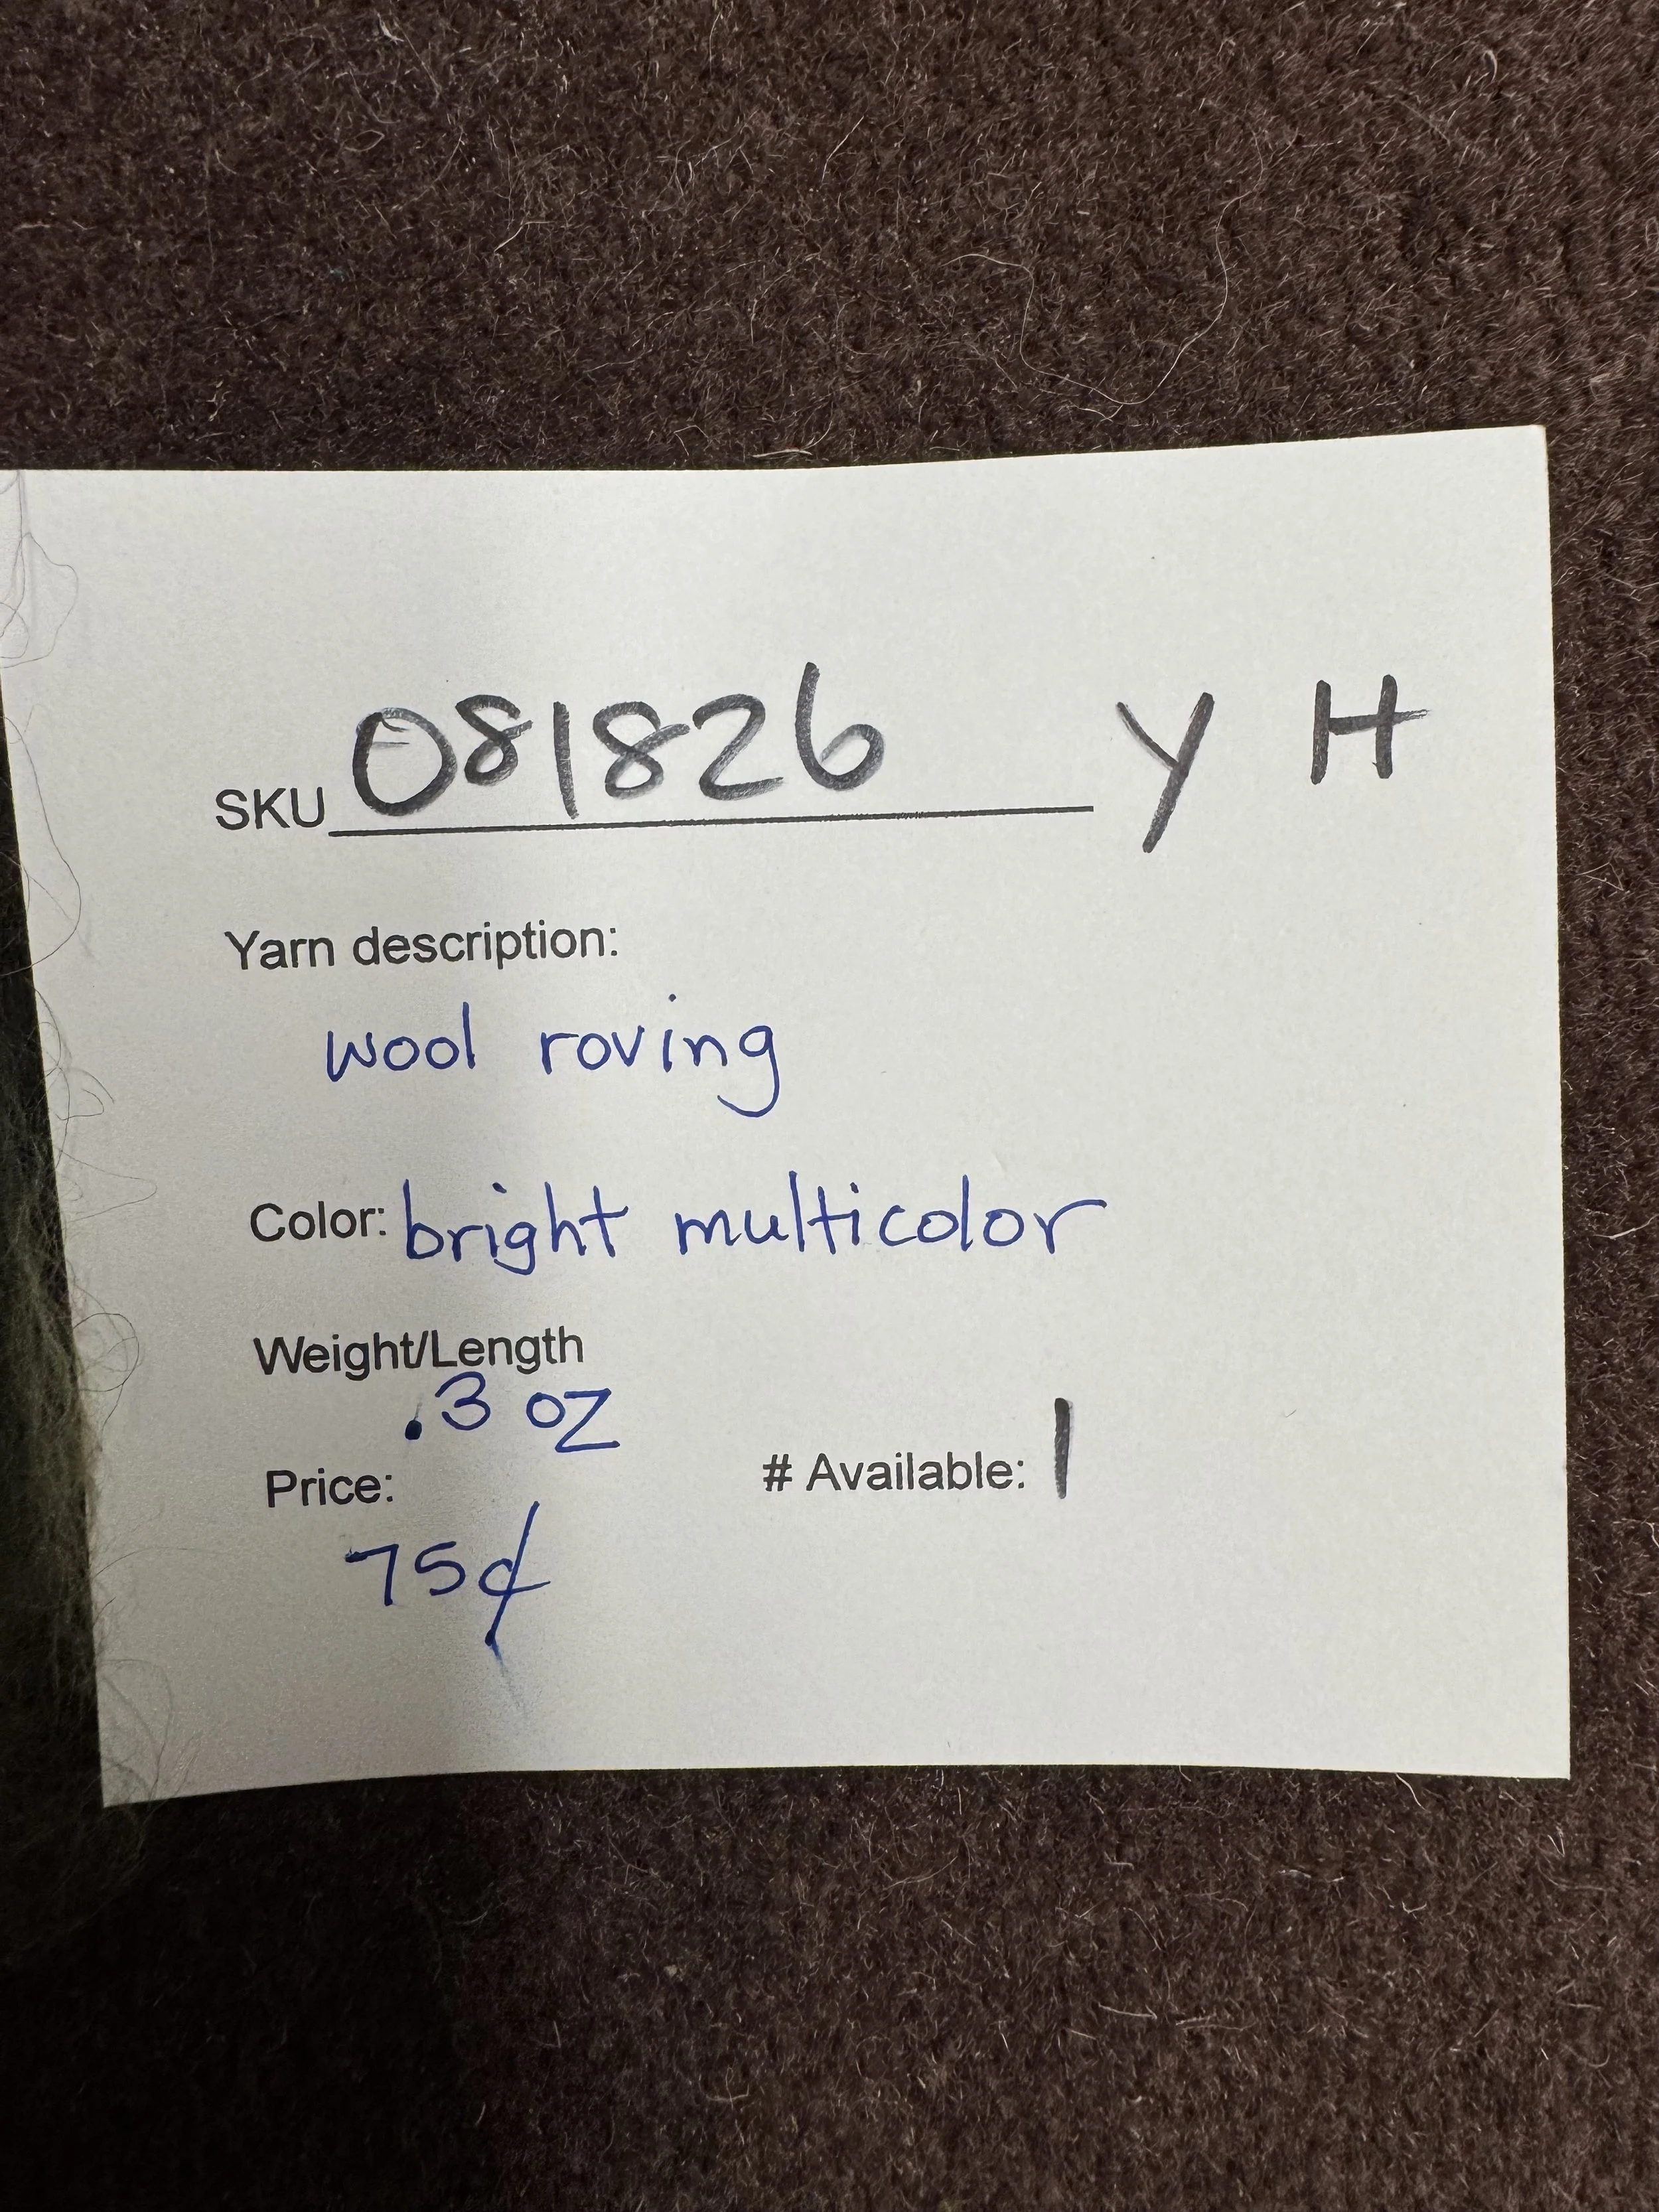 SKU 081826 Y H
Yarn description:
wool roving
Color: bright multicolor
Weight/Length
.3 oz
Price:
# Available: 1
75¢